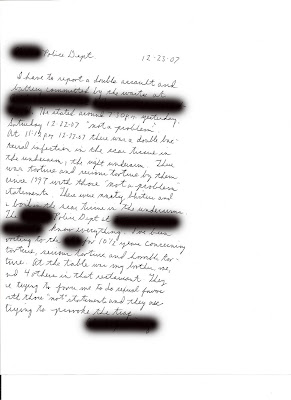 Police Dept. 12-23-07
I have to report a double assault and
battery committed by the waiter at
He stated around 7:30pm yesterday,
Saturday 12-22-07 "not a problem"
At 11:15pm 12-22-07 there was a double
infection in the scar tissue in
the underarm, the right underarm. There
was torture and torture by them
since 1997 with those "not a problem"
statements. There were nasty and
a in the scar tissue in the underarms.
The Police Dept at
know everything. I've been
to the for 10 1/2 years concerning
torture, torture and horrible tor-
ture. At the table was my brother, me,
and 4 others in that restaurant. They
re trying to force me to do sexual favors
with those "not" statements and they are
trying to provoke the